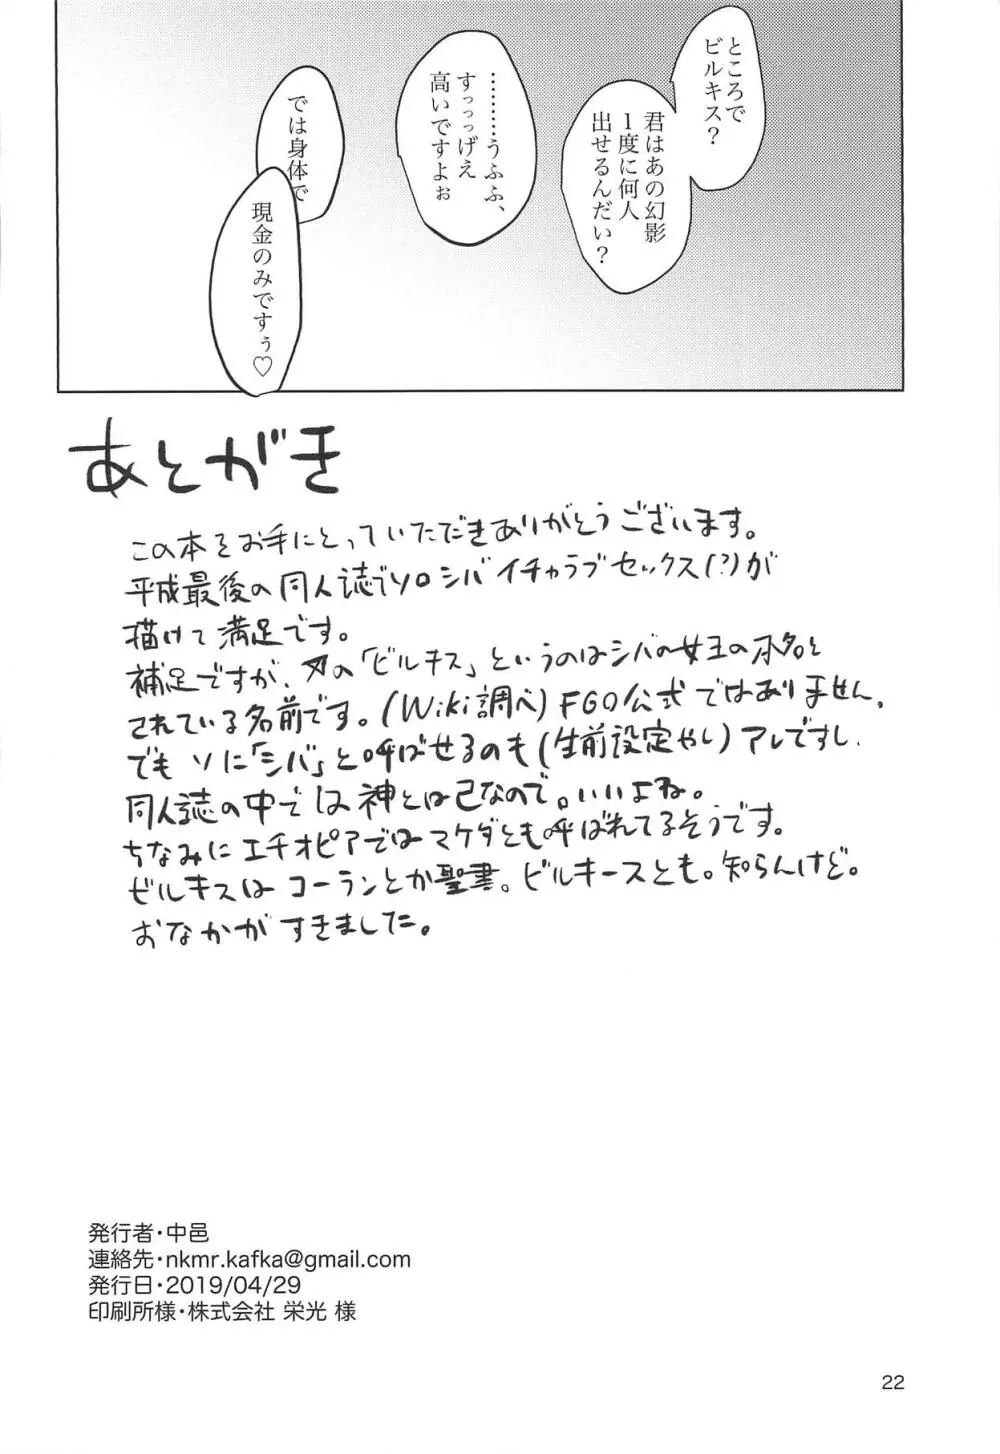 ところで
ビルキス？
君はあの幻影
１度に何人
出せるんだい？
………うふふ、
すっっっげえ
高いですよぉ
では身体で
現金のみですぅ♡
あとがき
この本をお手にとっていただきありがとうございます。
平成最後の同人誌でソロシバイチャラブセックス(?)が
描けて満足です。
補足ですが、の「ビルキス」というのはシバの女王の本名と
されている名前です。(Wiki調べ)FGO公式ではありません。
でもソに「シバ」と呼ばせるのも(生前設定やし)アレですし、
同人誌の中では神とは己なので。いいよね。
ちなみにエチオピアではマケダとも呼ばれてるそうです。
ビルキスはコーランとか聖書。ビルキースとも。知らんけど。
おなかがすきました。
発行者・中邑
連絡先・nkmr.kafka@gmail.com
発行日・2019/04/29
印刷所様・株式会社 栄光 様
22